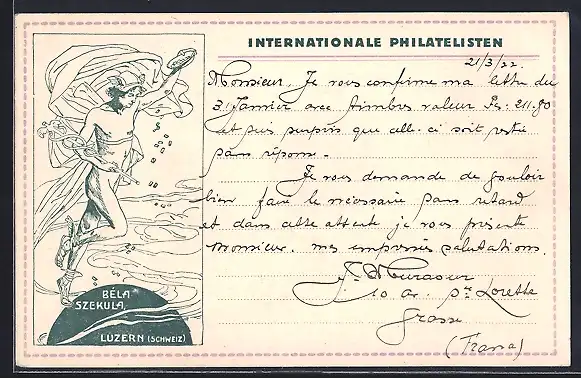 INTERNATIONALE PHILATELISTEN
21/3/22.
Monsieur, Je vous confirme ma lettre du
3 Janvier avec timbres valeur Frs. 211.80
et suis surpris que celle-ci soit restée
sans réponse.
Je vous demande de vouloir
bien faire le nécessaire sans retard
et dans cette attente je vous présente
Monsieur. mes empressées salutations.
10 av. Lorette
Grasse
(France)
BÉLA
SZEKULA,
LUZERN (SCHWEIZ)